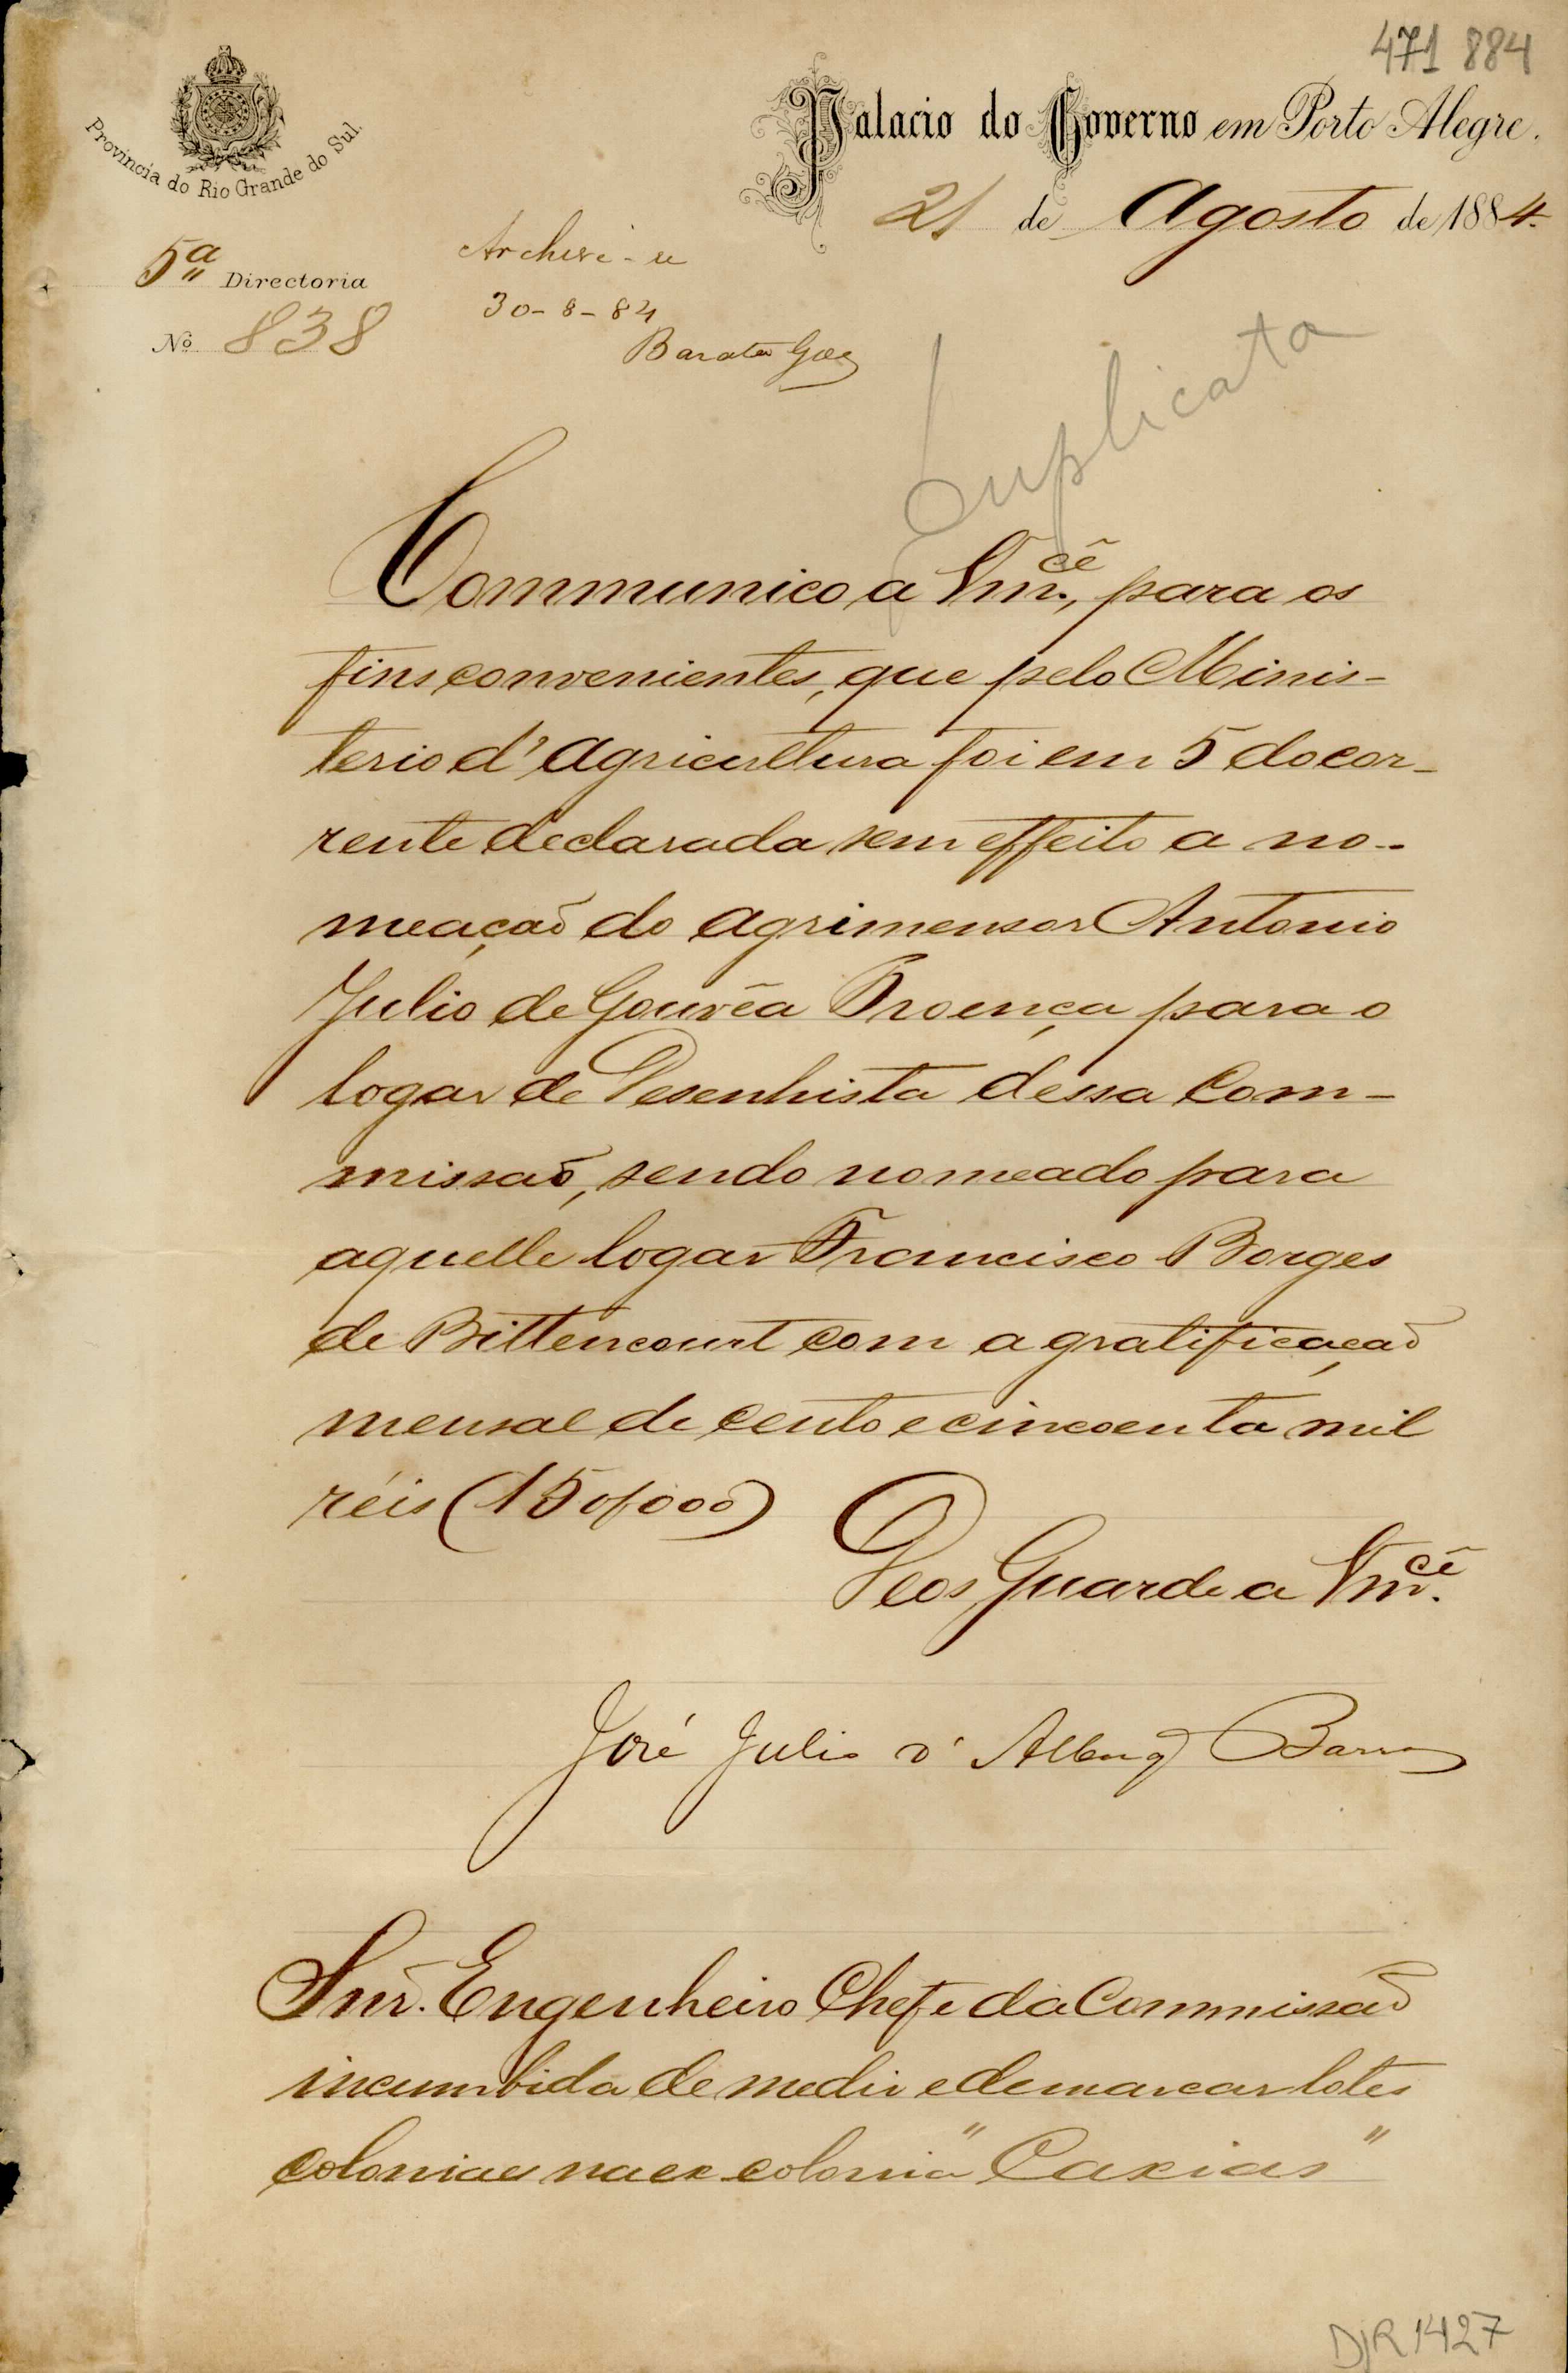 471 884
Palacio do Governo em Porto Alegre.
Provincia do Rio Grande do Sul.
21 de Agosto de 1884.
5ª Directoria
Nº 838
Archive-se
30-8-84
Barata Góes
Duplicata
Communico a Vm.cê, para os
fins convenientes, que pelo Minis-
terio d'Agricultura foi em 5 do cor-
rente declarada sem effeito a no-
meação do agrimensor Antonio
Julio de Gouvêa Proença para o
logar de Desenhista dessa Com-
missaõ, sendo nomeado para
aquelle logar Francisco Borges
de Bittencourt com a gratificaçaõ
mensal de cento e cincoenta mil
réis (150$000)
Deos Guarde a Vm.cê
José Julio d'Albuq Barros
Snr. Engenheiro Chefe da Commissaõ
incumbida de medir e demarcar lotes
coloniaes na ex colonia "Caxias"
DJR 1427